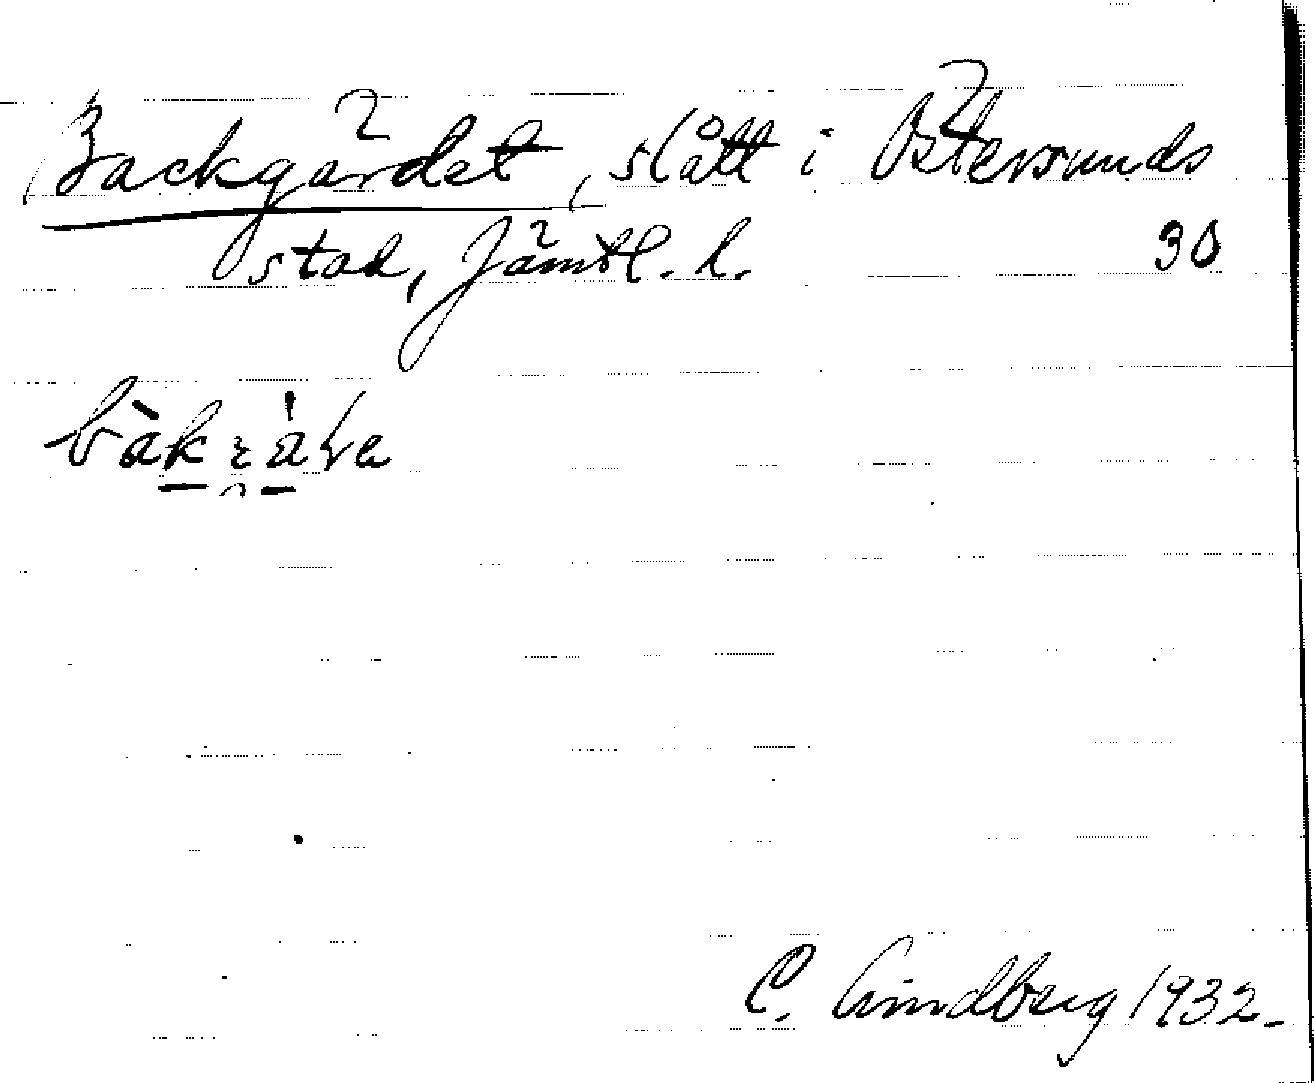 Backgärdet, slått i Östersunds
stad, Jämtl. l.
30
C. Lindberg 1932.